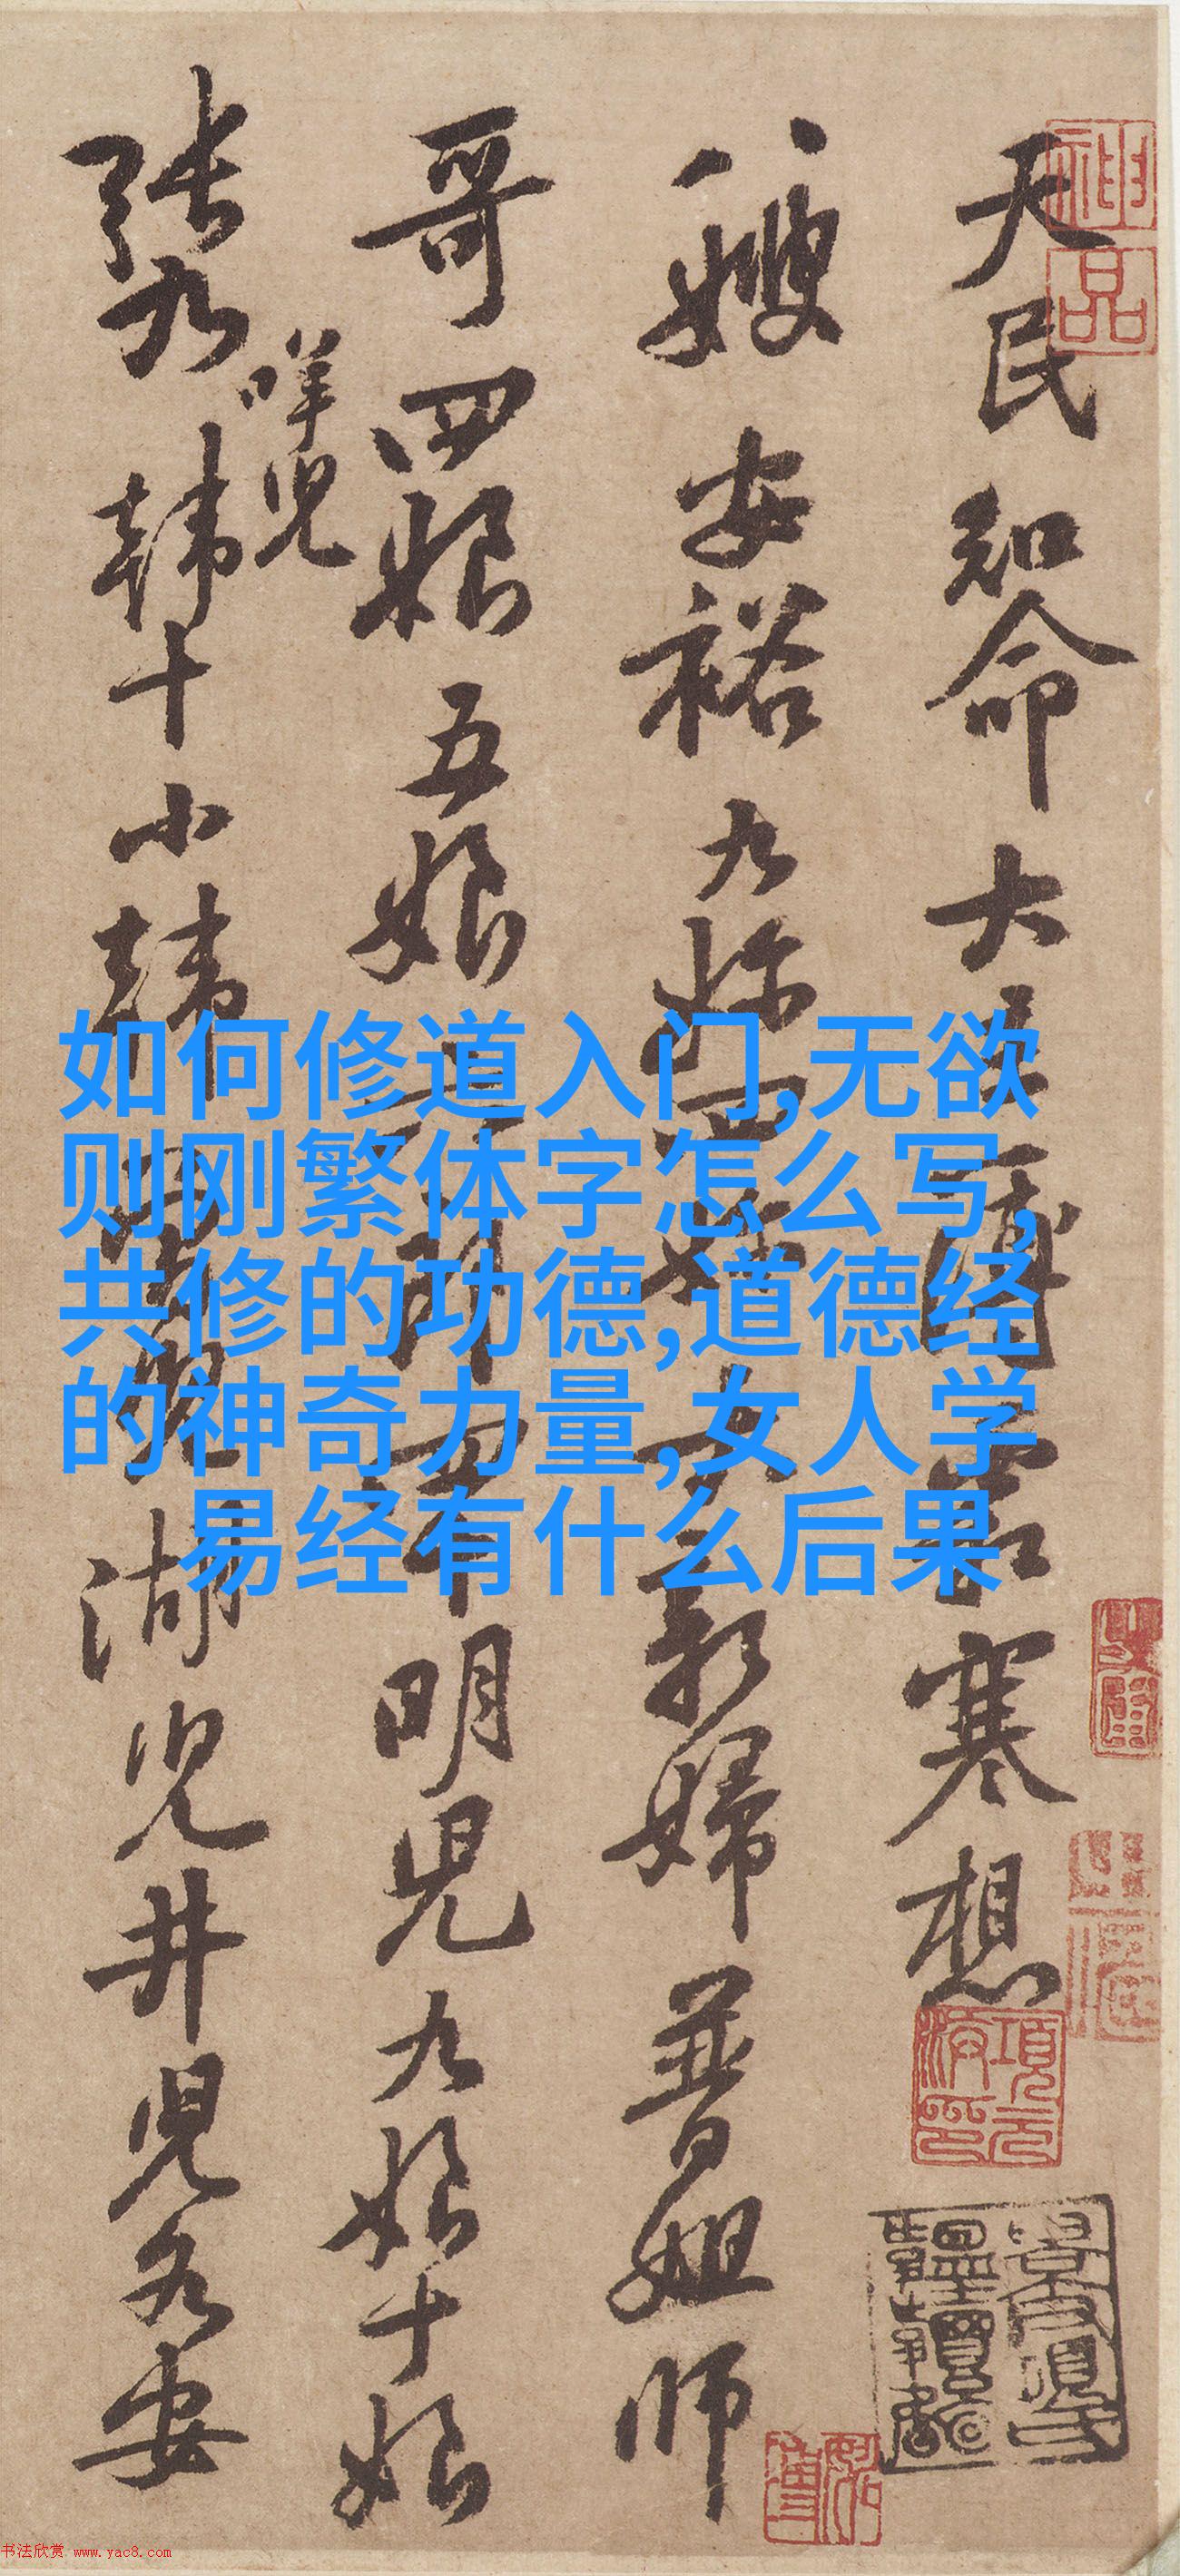 天民知命大主簿寒想
八嫂安裕九妳新婦普姐師
哥四娘五娘明兒九娘十娘
張九咩兒韓十小韓湖兒井兒各安
如何修道入门,无欲
则刚繁体字怎么写,
共修的功德,道德经
的神奇力量,女人学
易经有什么后果
书法欣赏 www.yac8.com